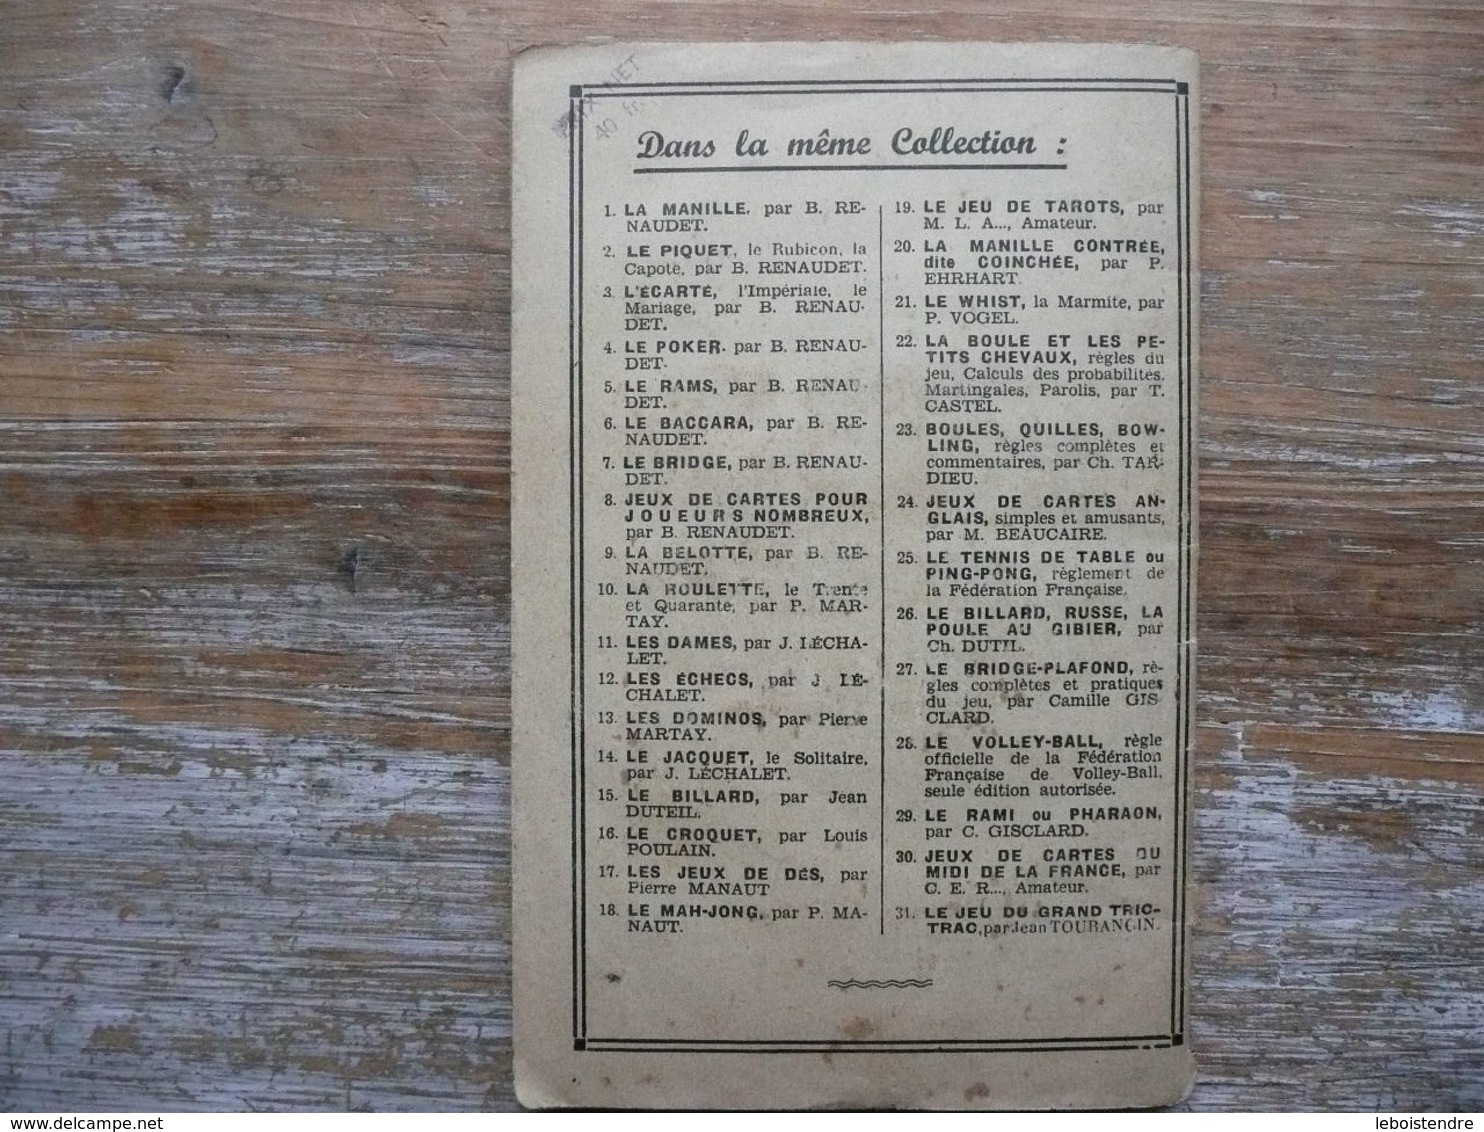 PRIX NET
40 fr.
Dans la même Collection :
1. LA MANILLE. par B. RE-
NAUDET.
2. LE PIQUET, le Rubicon, la
Capote, par B. RENAUDET.
3. L'ÉCARTÉ, l'Impériale, le
Mariage, par B. RENAU-
DET.
4. LE POKER. par B. RENAU-
DET.
5. LE RAMS, par B. RENAU-
DET.
6. LE BACCARA, par B. RE-
NAUDET.
7. LE BRIDGE, par B. RENAU-
DET.
8. JEUX DE CARTES POUR
JOUEURS NOMBREUX,
par B. RENAUDET.
9. LA BELOTTE, par B. RE-
NAUDET.
10. LA ROULETTE, le Trente
et Quarante, par P. MAR-
TAY.
11. LES DAMES, par J. LÉCHA-
LET.
12. LES ÉCHECS, par J LÉ-
CHALET.
13. LES DOMINOS, par Pierre
MARTAY.
14. LE JACQUET, le Solitaire,
par J. LÉCHALET.
15. LE BILLARD, par Jean
DUTEIL.
16. LE CROQUET, par Louis
POULAIN.
17. LES JEUX DE DÉS, par
Pierre MANAUT
18. LE MAH-JONG, par P. MA-
NAUT.
19. LE JEU DE TAROTS, par
M. L. A..., Amateur.
20. LA MANILLE CONTRÉE,
dite COINCHÉE, par P.
EHRHART.
21. LE WHIST, la Marmite, par
P. VOGEL.
22. LA BOULE ET LES PE-
TITS CHEVAUX, règles du
jeu, Calculs des probabilités.
Martingales, Parolis, par T.
CASTEL.
23. BOULES, QUILLES, BOW-
LING, règles complètes et
commentaires, par Ch. TAR-
DIEU.
24. JEUX DE CARTES AN-
GLAIS, simples et amusants,
par M. BEAUCAIRE.
25. LE TENNIS DE TABLE ou
PING-PONG, règlement de
la Fédération Française.
26. LE BILLARD, RUSSE, LA
POULE AU GIBIER, par
Ch. DUTIL.
27. LE BRIDGE-PLAFOND, rè-
gles complètes et pratiques
du jeu, par Camille GIS
CLARD.
28. LE VOLLEY-BALL, règle
officielle de la Fédération
Française de Volley-Ball,
seule édition autorisée.
29. LE RAMI ou PHARAON,
par C. GISCLARD.
30. JEUX DE CARTES DU
MIDI DE LA FRANCE, par
C. E. R..., Amateur.
31. LE JEU DU GRAND TRIC-
TRAC, par Jean TOURANGIN.
www.delcampe.net
leboistendre